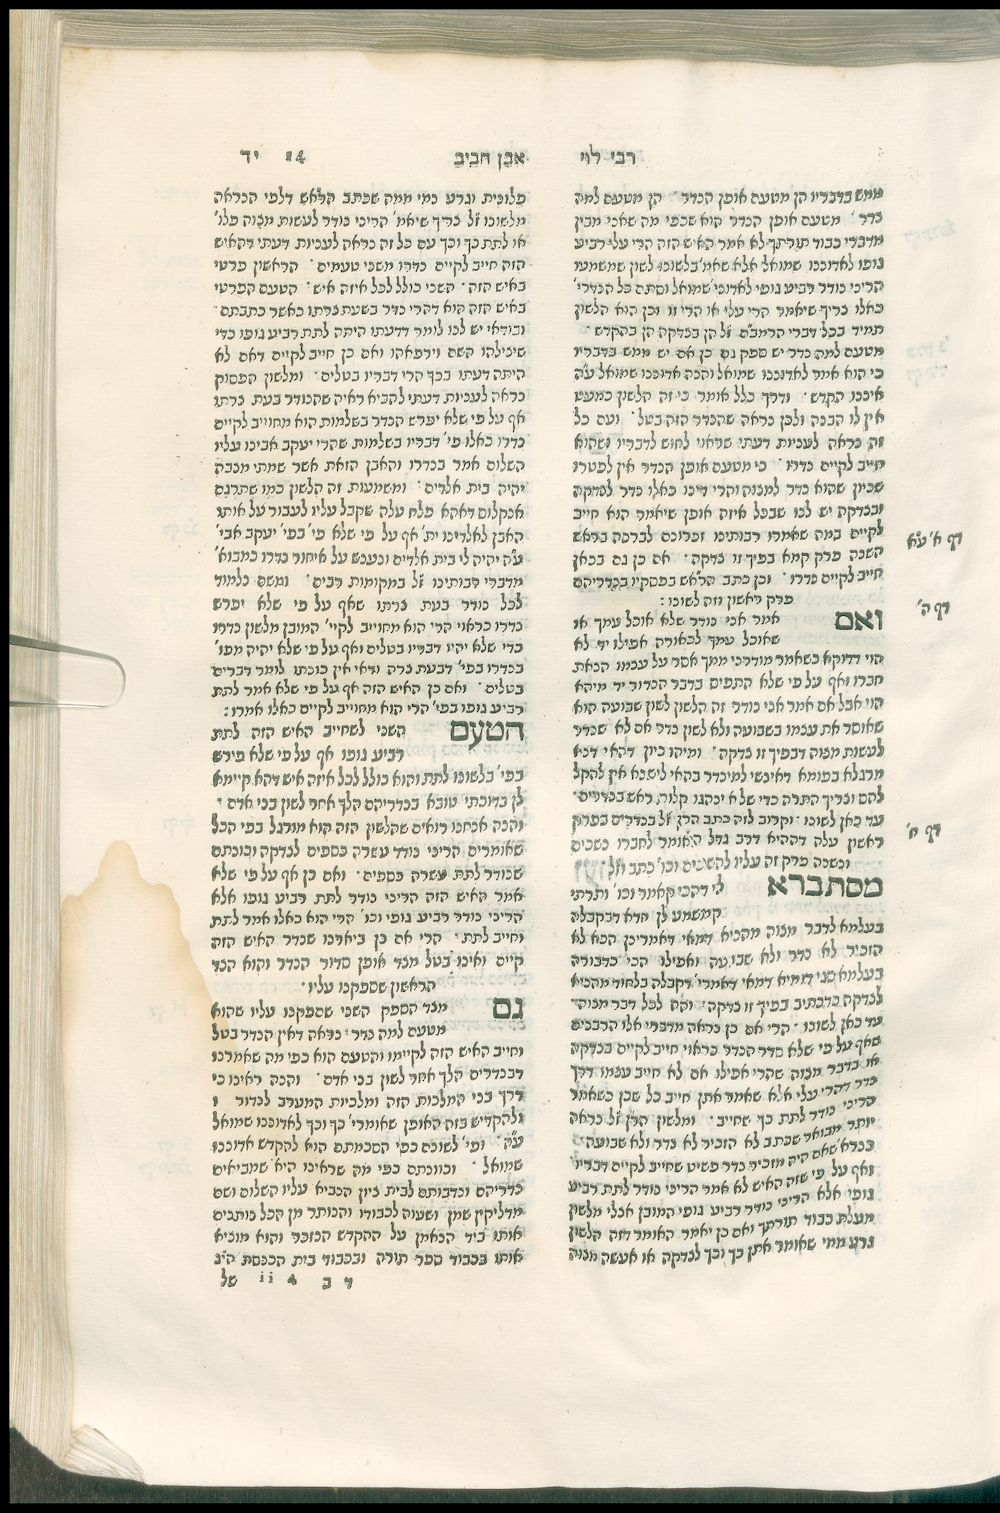 רבי לוי
אבן חביב
14 יד
ממש בדבריו הן מטעם אופן הנדר הן מטעם למה
נדר מטעם אופן הנדר הוא שכפי מה שאני מבין
מדברי כבוד תורתך לא אמר האיש הזה הרי עלי רביע
גופו לאדוננו שמואל אלא שאמ' בלשונו לשון שמשמעו
הריני נודר רביע גופי לאדוני שמואל וסתם כל הנודרי'
כאלו צריך שיאמר הרי עלי או הרי זו וכן הוא הלשון
תמיד בכל דברי הרמב"ם ז"ל הן בצדקה הן בהקדש
מטעם למה נדר יש ספק גם כן אם יש ממש בדבריו
כי הוא אמר לאדוננו שמואל והנה אדוננו שמואל ע"ה
איננו הקדש ודרך כלל אומר כי זה הלשון כמעט
אין לו הבנה ולכן נראה שהנדר הזה בטל ועם כל
זה נראה לעניות דעתי שראוי לחוש לדבריו ושהוא
חייב לקיים נדרו כי מטעם אופן הנדר אין לפטרו
שכיון שהוא נדר למצוה והרי דינו כאלו נדר לצדקה
ובצדקה יש לנו שבכל איזה אופן שיאמר הוא חייב
לקיים במה שאמרו רבותינו זכרונם לברכה בראש
השנה פרק קמא בפיך זו צדקה אם כן גם בכאן
חייב לקיים נדרו וכן כתב הרא"ש בפסקיו בנדריהם
פרק ראשון וזה לשונו :
ואם אמר אני נודר שלא אוכל עמך או
שאוכל עמך לכאורה אפילו יד לא
הוי דדוקא כשאמר מודרני ממך אסר על עצמו הנאת
חברו ואף על פי שלא התפיס בדבר הנדור יד מיהא
הוי אבל אם אמר אני נודר זה הלשון לשון שבועה הוא
שאוסר את עצמו בשבועה ולא לשון נדר אם לא שנדר
לעשות מצוה דבפיך זו צדקה ומיהו כיון דהאי דנא
מרגלא בפומא דאינשי למידר בהאי לישנא אין להקל
להם וצריך התרה כדי שלא ינהגו קלות ראש בנדרים
עד כאן לשונו וקרוב לזה כתב הרן ז"ל בנדרים בפרק
ראשון עלה דההיא דרב גדל האומר לחברו נשכים
ונשנה פרק זה עליו להשכים וכו' כתב וז"ל
מסתברא לי דהכי קאמר וכו' ותרתי
קמשמע לן חדא דבקבלה
בעלמא לדבר מצוה מהניא דמאי דאמרינן הכא לא
הזכיר לא נדר ולא שבועה ואפילו הכי בדבורה
בעלמא סגי דומיא דמאי דאמרי' דקבלה בלחוד מהניא
לצדקה כדכתיב בפיך זו צדקה והוא לכל דבר מצוה
עד כאן לשונו הרי אם כן נראה מדברי אלו הרבנים
שאף על פי שלא סדר הנדר כראוי חייב לקיים בצדקה
או בדבר מצוה שהרי אפילו אם לא חייב עצמו דרך
נדר דהרי עלי אלא שאמר אתן חייב כל שכן כשאמר
הריני נודר לתת כך שחייב ומלשון הרן ז"ל נראה
יותר מבואר שכתב לא הזכיר לא נדר ולא שבועה
נראה שאם היה מזכיר נדר פשיט שחייב לקיים דבריו
ואף על פי שזה האיש לא אמר הריני נודר לתת רביע
גופי אלא הריני נודר רביע גופי המובן אצלי מלשון
מעלת כבוד תורתך ואם כן יאמר האומר דזה הלשון
גרע ממי שאומר אתן כך וכך לצדקה או אעשה מצוה
דף א' ע"א
דף ה'
דף ח'
פלונית וגרע נמי ממה שכתב הרא"ש דלפי הנראה
מלשונו ז"ל צריך שיאמ' הריני נודר לעשות מצוה פלו'
או לתת כך וכך עם כל זה נראה לעניות דעתי דהאיש
הזה חייב לקיים נדרו משני טעמים הראשון פרטי
באיש הזה השני כולל לכל איזה איש הטעם הפרטי
באיש הזה הוא דהרי נדר בשעת צרתו כאשר כתבתם
ובודאי יש לנו לומר דדעתו היתה לתת רביע גופו כדי
שיצילהו השם וירפאהו ואם כן חייב לקיים דאם לא
היתה דעתו בכך הרי דבריו בטלים ומלשון הפסוק
נראה לעניות דעתי להביא ראיה שהנודר בעת צרתו
אף על פי שלא יפרש הנדר בשלמות הוא מחוייב לקיים
נדרו כאלו פי' דבריו בשלמות שהרי יעקב אבינו עליו
השלום אמר בנדרו והאבן הזאת אשר שמתי מצבה
יהיה בית אלהים ומשמעות זה הלשון כמו שתרגם
אנקלום דאהא פלח עלה שקבל עליו לעבור על אותו
האבן לאלהינו ית' אף על פי שלא פי' בפי' יעקב אבי'
ע"ה יהיה לי בית אלהים ונענש על איחור נדרו כמבוא'
מדברי רבותינו ז"ל במקומות רבים ומשם נלמוד
לכל נודר בעת צרתו שאף על פי שלא יפרש
נדרו כראוי הרי הוא מחוייב לקיי' המובן מלשון נדרו
כדי שלא יהיו דבריו בטלים ואף על פי שלא יהיה מפו'
בנדרו בפי' דבעת צרה ודאי אין כונתו לומר דברים
בטלים ואם כן האיש הזה אף על פי שלא אמר לתת
רביע גופו בפי' הרי הוא מחוייב לקיים כאלו אמרו :
הטעם השני לשחייב האיש הזה לתת
רביע גופו אף על פי שלא פירש
בפי' בלשונו לתת והוא כולל לכל איזה איש דהא קיימא
לן בדוכתי טובא בנדריהם הלך אחר לשון בני אדם
והנה אנחנו רואים שהלשון הזה הוא מורגל בפי הכל
שאומרים הריני נודר עשרה כספים לצדקה וכונתם
שנודר לתת עשרה כספים ואם כן אף על פי שלא
אמר האיש הזה הריני נודר לתת רביע גופו אלא
הריני נודר רביע גופי וכו' הרי הוא כאלו אמר לתת
וחייב לתת הרי אם כן ביארנו שנדר האיש הזה
קיים ואינו בטל מצד אופן סדור הנדר והוא הצד
הראשון שספקנו עליו
גם מצד הספק השני שספקנו עליו שהוא
מטעם למה נדר נראה דאין הנדר בטל
וחייב האיש הזה לקיימו והטעם הוא כפי מה שאמרנו
דבנדרים הלך אחר לשון בני אדם והנה ראינו כי
דרך בני המלכות הזה ומלכיות המערב לנדור ו
ולהקדיש בזה האופן שאומרי' כך וכך לאדוננו שמואל
ע"ה ופי' לשונם כפי הסכמתם הוא להקדש אדוננו
שמואל וכוונתם כפי מה שראינו היא שמביאים
נדריהם ונדבותם לבית ציון הנביא עליו השלום ושם
מדליקין שמן ושעוה לכבודו והנותר מן הכל נותנים
אותו ביד הנאמן על ההקדש הנזכר והוא מוציא
אותו בכבוד ספר תורה ובכבוד בית הכנסת היו
ר ב 4 ii של